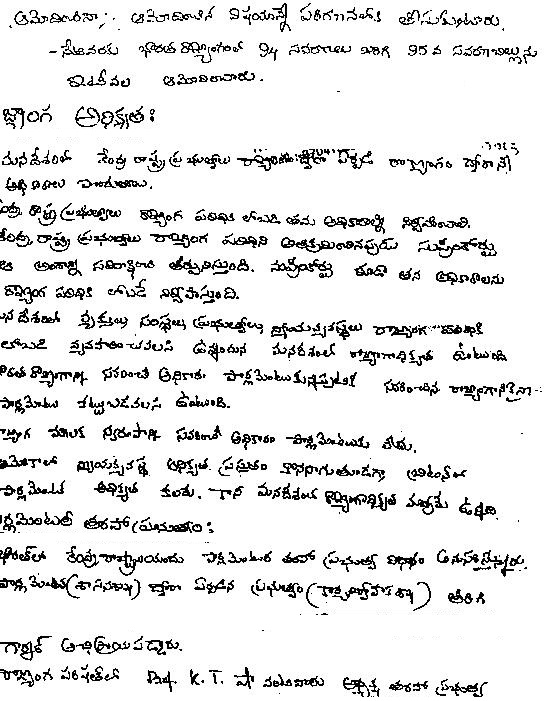 ఆమోదించినా, ఆమోదించిన విషయాన్నే పరిగణనలోకి తీసుకుంటారు.
- సేటివరకు భారత రాజ్యాంగంలో 94 సవరణలు జరిగి 95వ సవరణబిల్లును
ఇటీవల ఆమోదించారు.
జ్యాంగ ఆధిక్యత:
మనదేశంలో కేంద్ర రాష్ట్ర ప్రభుత్వాలు రాజ్యాంగం ద్వారా ఏర్పడి రాజ్యాంగం ద్వారానే
అధికారాలు పొందుతాయి.
కేంద్ర రాష్ట్ర ప్రభుత్వాలు రాజ్యాంగ పరిధికి లోబడి తమ అధికారాన్ని నిర్వహించాలి.
కేంద్ర, రాష్ట్ర ప్రభుత్వాలు రాజ్యాంగ పరిధిని అతిక్రమించినప్పుడు సుప్రీంకోర్టు
ఆ అంశాన్ని సమీక్షించి తీర్పునిస్తుంది. సుప్రీంకోర్టు కూడా తన అధికారాలను
రాజ్యాంగ పరిధికి లోబడే నిర్వహిస్తుంది.
మన దేశంలో వ్యక్తులు సంస్థలు ప్రభుత్వాలు న్యాయవ్యవస్థలు రాజ్యాంగ పరిధికి
లోబడి వ్యవహరించవలసి ఉన్నందున మనదేశంలో రాజ్యాంగాధిక్యత ఉంటుంది
భారత రాజ్యాంగాన్ని సవరించే అధికారం పార్లమెంటుకున్నప్పటికీ సవరించిన రాజ్యాంగానికైనా
పార్లమెంటు కట్టుబడవలసి ఉంటుంది.
రాజ్యాంగ మౌలిక స్వరూపాన్ని సవరించే అధికారం పార్లమెంటుకు లేదు.
అమెరికాలో న్యాయవ్యవస్థ ఆధిక్యత ప్రస్తుతం కొనసాగుతుండగా బ్రిటన్‌లో
పార్లమెంట్ ఆధిక్యత కలదు. కానీ మనదేశంలో రాజ్యాంగాధిక్యత మాత్రమే ఉన్నది
పార్లమెంటరీ తరహా ప్రభుత్వం:
భారత్‌లో కేంద్రరాష్ట్రాలయందు పార్లమెంటరీ తరహా ప్రభుత్వ విధానం అనుసరిస్తున్నారు.
పార్లమెంటరీ (శాసనశాఖ) ద్వారా ఏర్పడిన ప్రభుత్వం (కార్యనిర్వాహక శాఖ) తిరిగి
గార్నర్ అభిప్రాయపడ్డారు.
రాజ్యాంగ పరిషత్‌లో Prof. K. T. షా వంటివారు అధ్యక్ష తరహా ప్రభుత్వ